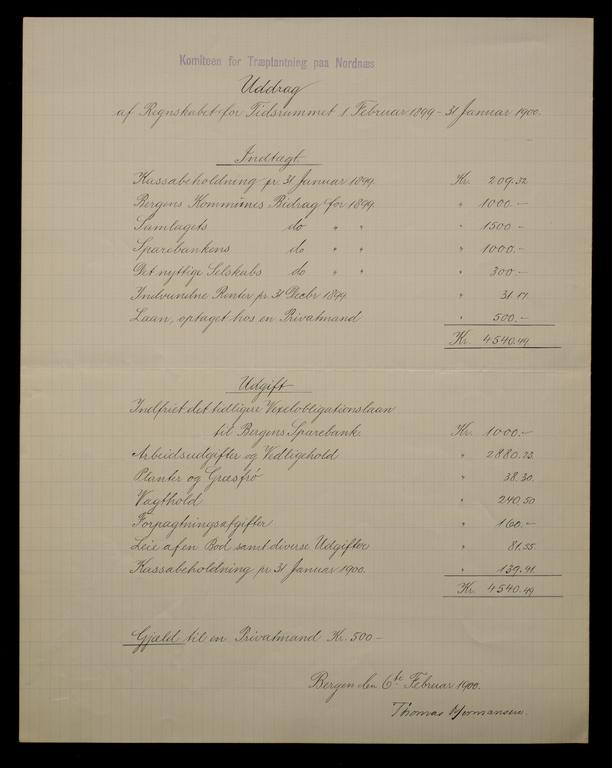 Komiteen for Træplantning paa Nordnæs
Uddrag
af Regnskabet for Tidsrummet 1 Februar 1899 - 31 Januar 1900.
Indtægt
Kassabeholdning pr. 31 Januar 1899 Kr. 209.32
Bergens Kommunes Bidrag for 1899 " 1000.-
Samlagets do " " " 1500 -
Sparebankens do " " " 1000.-
Det nyttige Selskabs do " " " 300 -
Indvundne Renter pr 31 Decbr 1899 " 31.17
Laan, optaget hos en Privatmand " 500.-
Kr. 4540.49
Udgift
Indfriet det tidligere Vexelobligationslaan
til Bergens Sparebank. Kr. 1000.-
Arbeidsudgifter og Vedligehold " 2880.73.
Planter og Græsfrø " 38.30.
Vagthold " 240.50
Forpagtningsafgifter " 160.-
Leie af en Bod samt diverse Udgifter " 81.55.
Kassabeholdning pr. 31 Januar 1900. " 139.41
Kr. 4540.49
Gjæld til en Privatmand Kr. 500 -
Bergen den 6te Februar 1900.
Thomas Mermansen.